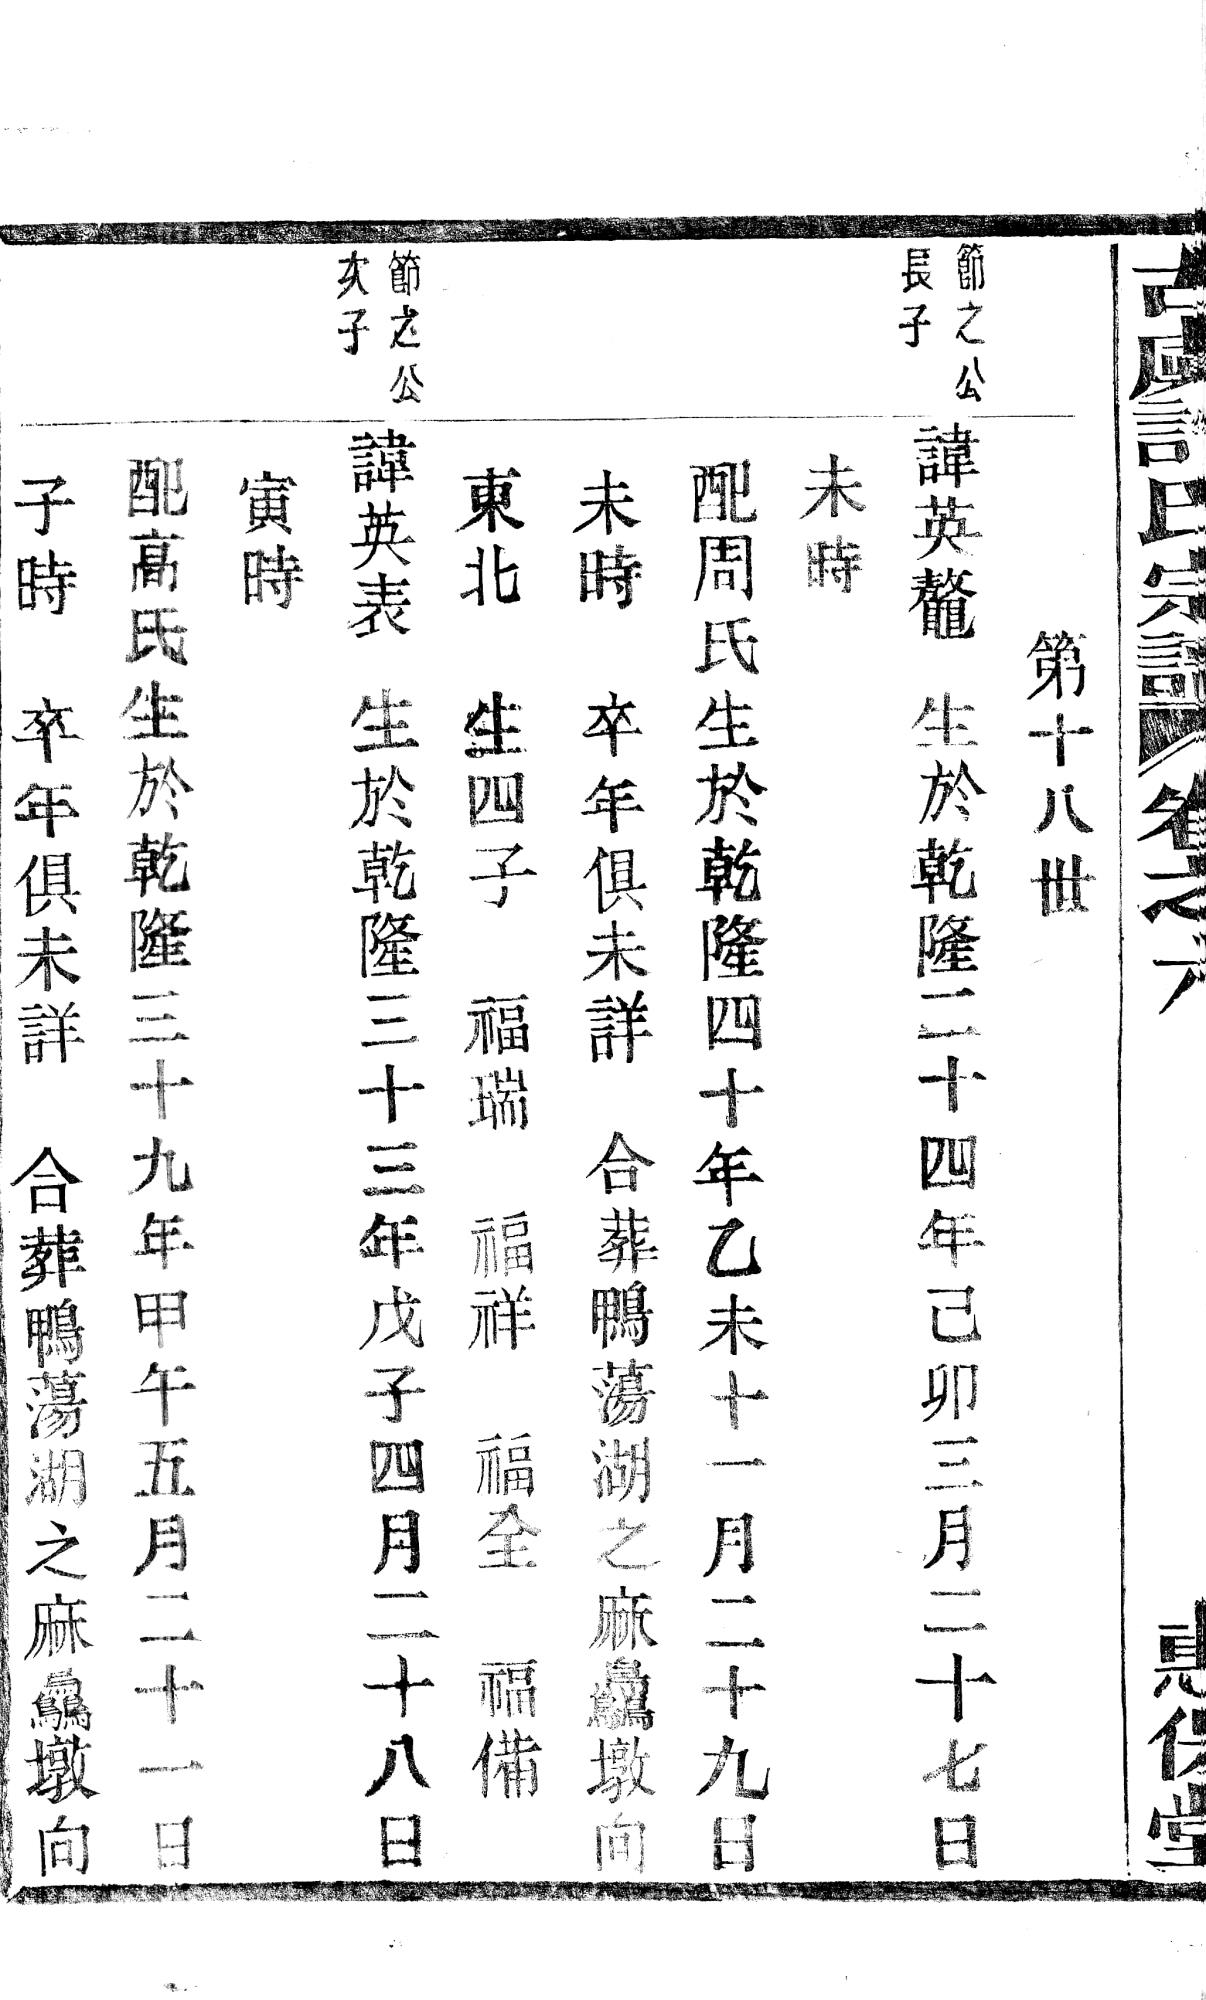 古虞許氏宗譜 卷之六 堂
第十八世
節之公
長子
諱英鼇 生於乾隆二十四年己卯三月二十七日
未時
配周氏生於乾隆四十年乙未十一月二十九日
未時 卒年俱未詳 合葬鴨蕩湖之麻墩向
東北 生四子 福瑞 福祥 福全 福備
節之公
次子
諱英表 生於乾隆三十三年戊子四月二十八日
寅時
配高氏生於乾隆三十九年甲午五月二十一日
子時 卒年俱未詳 合葬鴨蕩湖之麻墩向